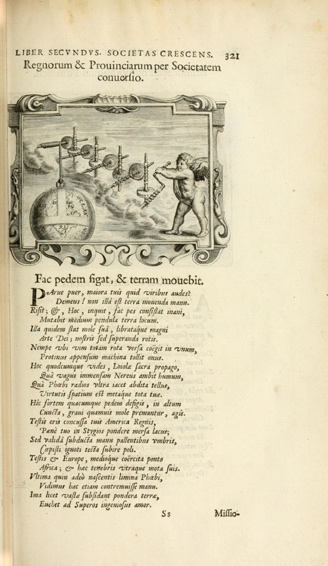 LIBER SECVNDVS. SOCIETAS CRESCENS. 321
Regnorum & Prouinciarum per Societatem
conuersio.
Fac pedem figat, & terram mouebit.
PArue puer, maiora tuis quid viribus audes?
Demens! non illâ est terra mouenda manu.
Risit; &, Hoc, inquit, fac pes consistat inani,
Mutabit medium pendula terra locum.
Illa quidem stat mole suâ, librataque magni
Arte Dei; nostris sed superanda rotis.
Nempe vbi vim totam rota versa coëgit in vnum,
Protinus appensum machina tollit onus.
Hoc quodcumque vides, Loiola sacra propago,
Quâ vagus immensam Nereus ambit humum,
Quâ Phœbi radius vltra iacet abdita tellus,
Virtutis spatium est metaque tota tuæ.
Hic fortem quacumque pedem defigis, in altum
Cuncta, graui quamuis mole premantur, agis.
Testis erit concussa tuis America Regnis,
Pænè tuo in Stygios pondere mersa lacus;
Sed validâ subducta manu pallentibus vmbris,
Cœpisti ignoti tecta subire poli.
Testis & Europe, medioque coërcita ponto
Africa; & hac tenebris vtraque mota suis.
Vltima quin adeò nascentis limina Phœbi,
Vidimus hac etiam contremuisse manu.
Ima licet vastæ subsidant pondera terræ,
Euehet ad Superos ingeniosus amor.
Ss Missio-